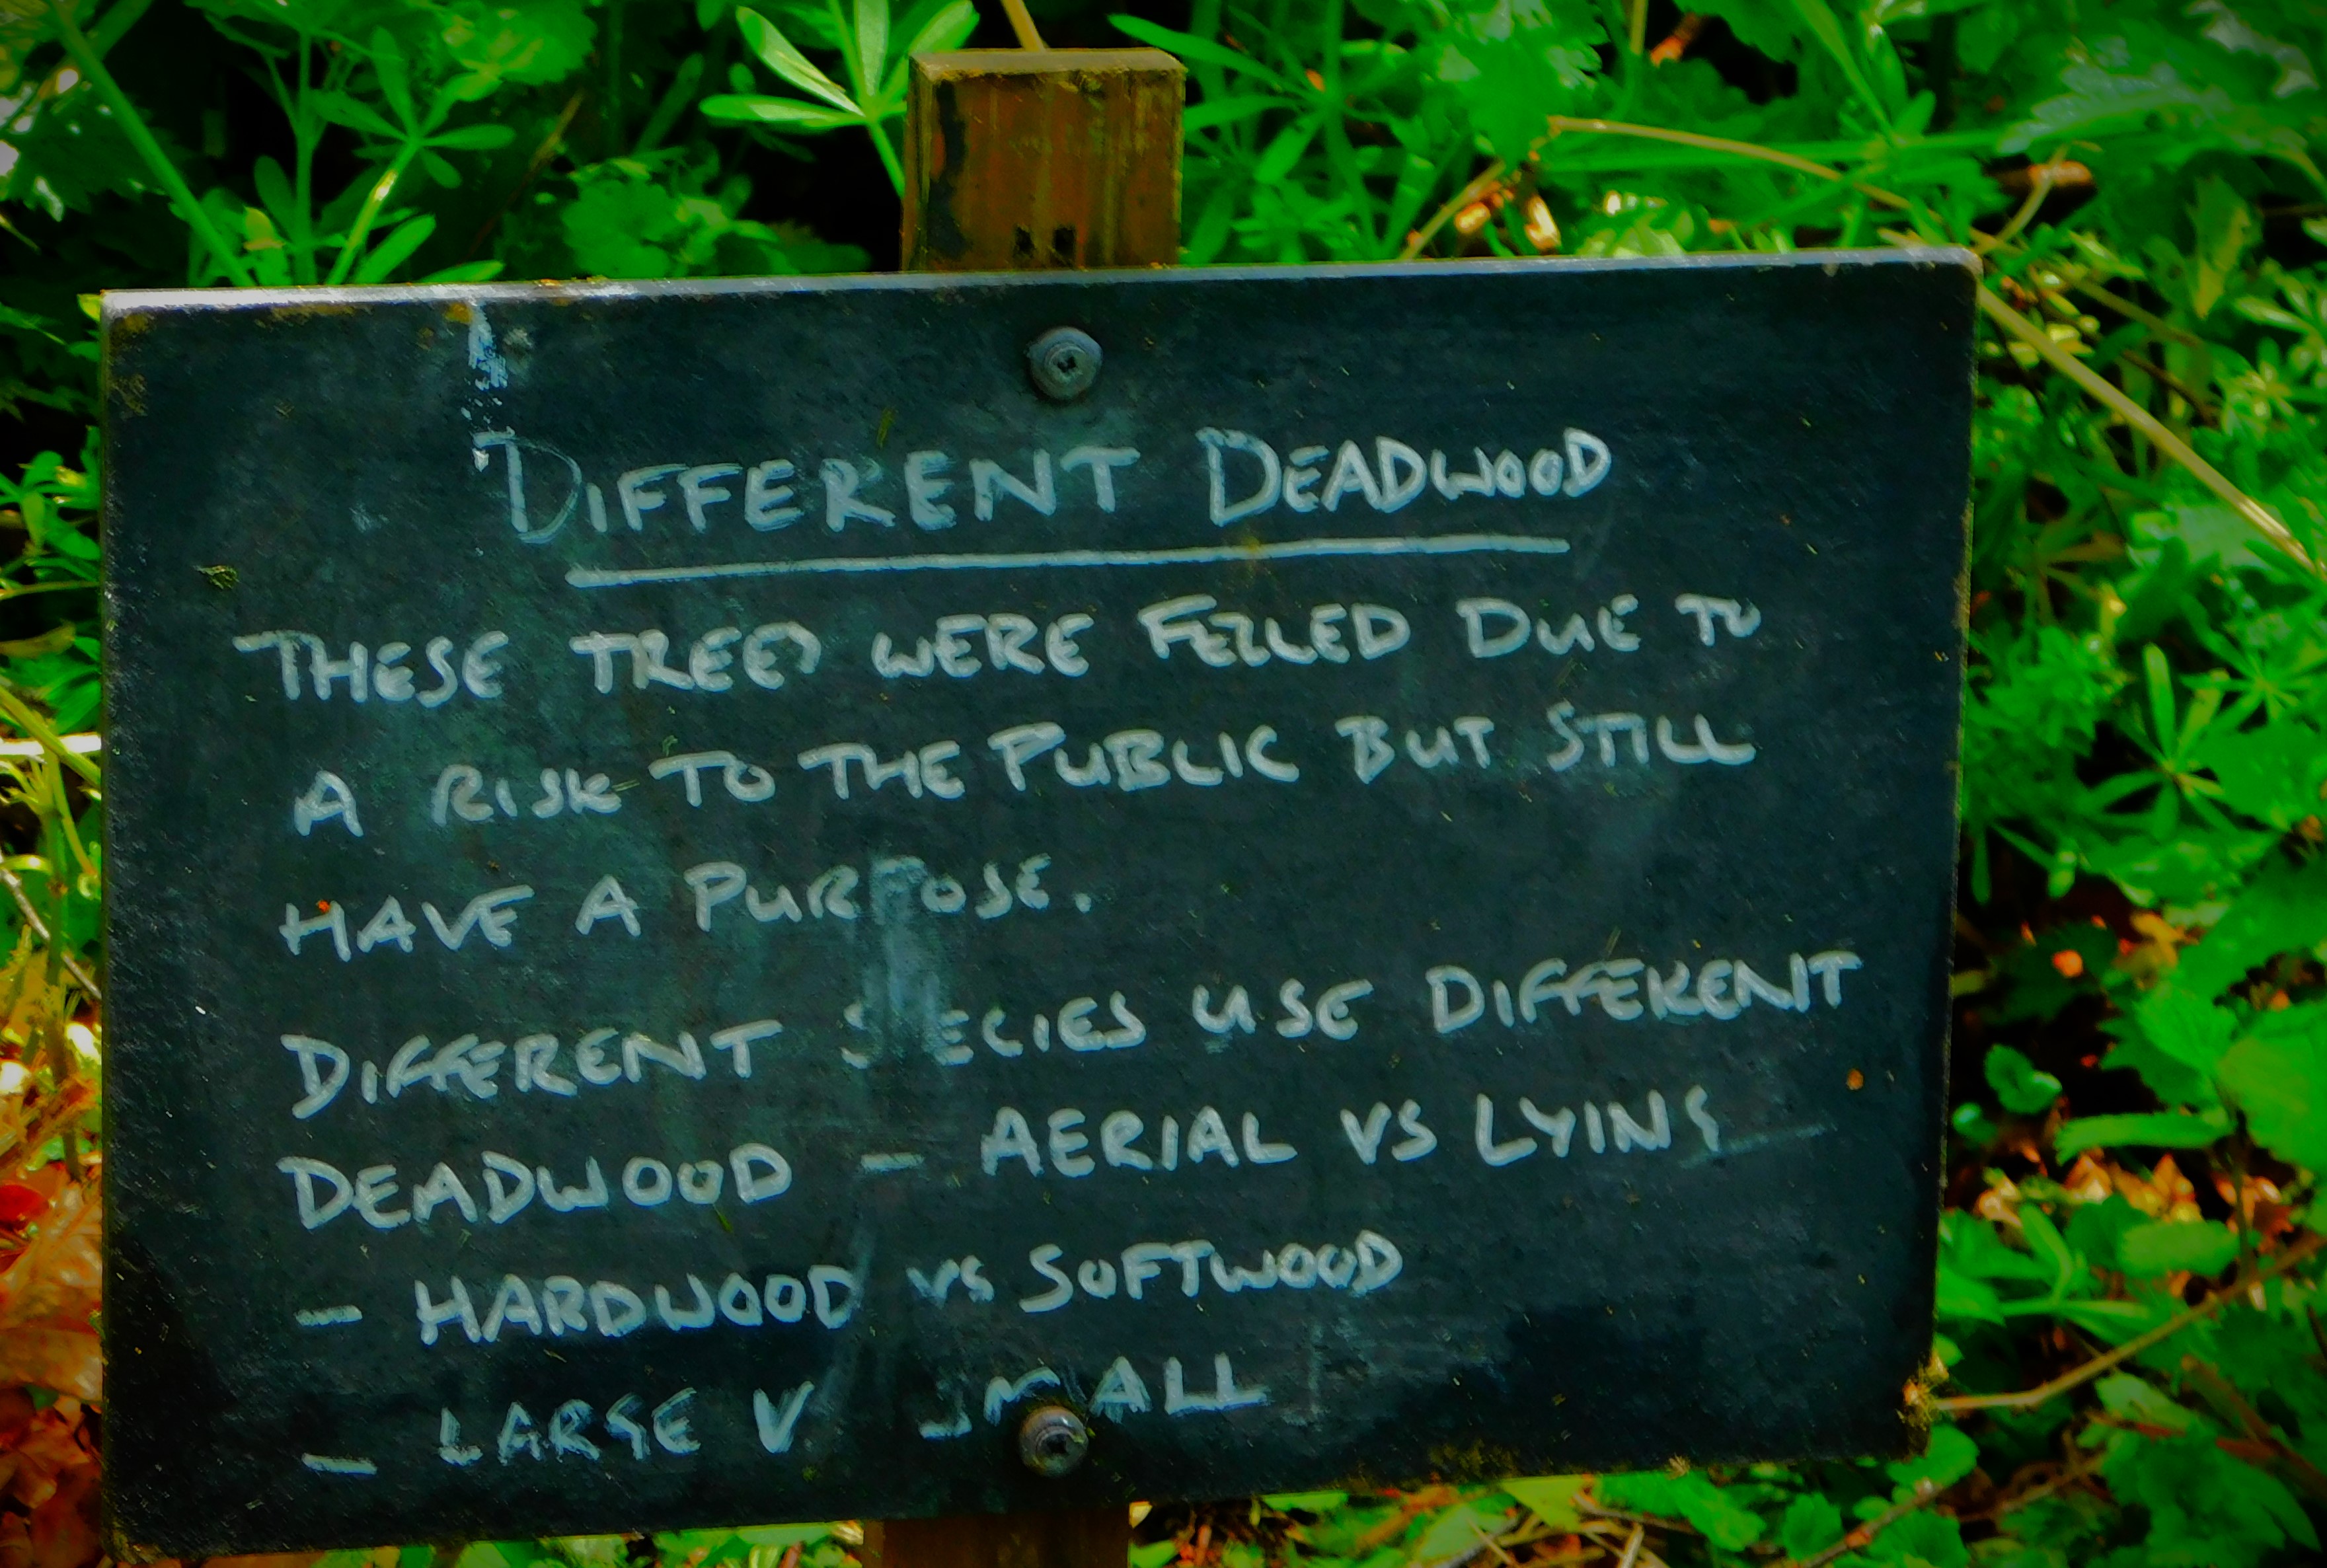 DIFFERENT DEADWOOD
THESE TREES WERE FELLED DUE TO
A RISK TO THE PUBLIC BUT STILL
HAVE A PURPOSE.
DIFFERENT SPECIES USE DIFFERENT
DEADWOOD - AERIAL VS LYING
- HARDWOOD VS SOFTWOOD
- LARGE V SMALL